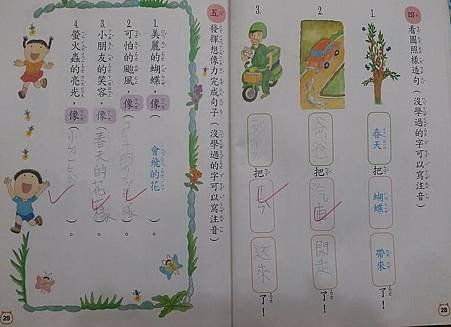 四 看圖照樣造句(沒學過的字可以寫注音)
1. 春天 把 蝴蝶 帶來 了!
2. 爸爸 把 汽車 開走 了!
3. 把 送來 了!
28
五 發揮想像力完成句子(沒學過的字可以寫注音)
1. 美麗的蝴蝶,像(會飛的花)。
2. 可怕的颱風,像( )。
3. 小朋友的笑容,像(春天的花)。
4. 螢火蟲的亮光,像( )。
29